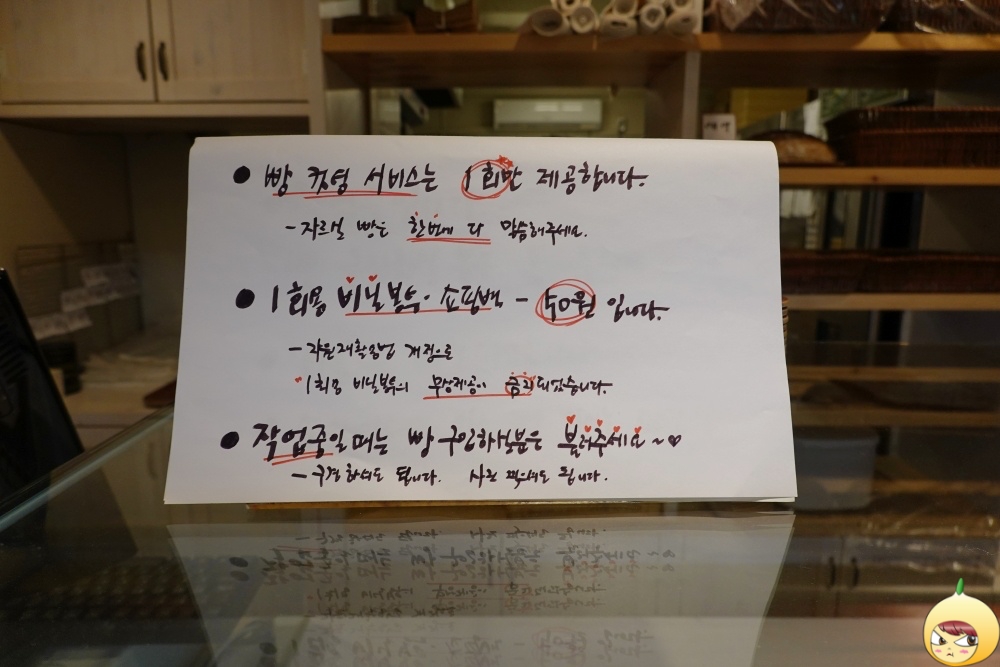 ● 빵 컷팅 서비스는 1회만 제공합니다.
- 자르실 빵은 한번에 다 말씀해주세요.
● 1회용 비닐봉투·쇼핑백 - 50원 입니다.
- 자원재활용법 개정으로
1회용 비닐봉투의 무상제공이 금지되었습니다.
● 작업중일 때는 빵 구입하실분은 불러주세요~♡
- 구경하셔도 됩니다. 사진 찍으셔도 됩니다.